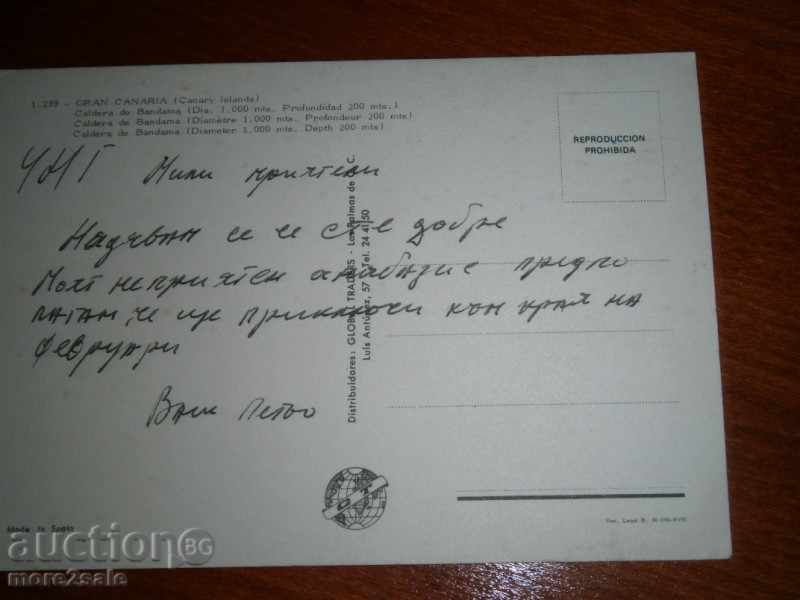 1.289 - GRAN CANARIA (Canary Islands)
Caldera de Bandama (Dia. 1.000 mts. Profundidad 200 mts.)
Caldera de Bandama (Diamètre 1.000 mts. Profondeur 200 mts.)
Caldera de Bandama (Diameter 1.000 mts. Depth 200 mts.)
REPRODUCCION
PROHIBIDA
ЧНГ Мили приятели
Надявам се че сте добре
Моят неприятен анабазис предпо
лагам че ще приключи към края на
февруари
Ваш Петьо
Distribuidores: GLOBAL TRADERS - Las Palmas de G. C.
Luis Antúnez, 57 - Tel. 24 41 50
Made in Spain
auctionBG
more2sale